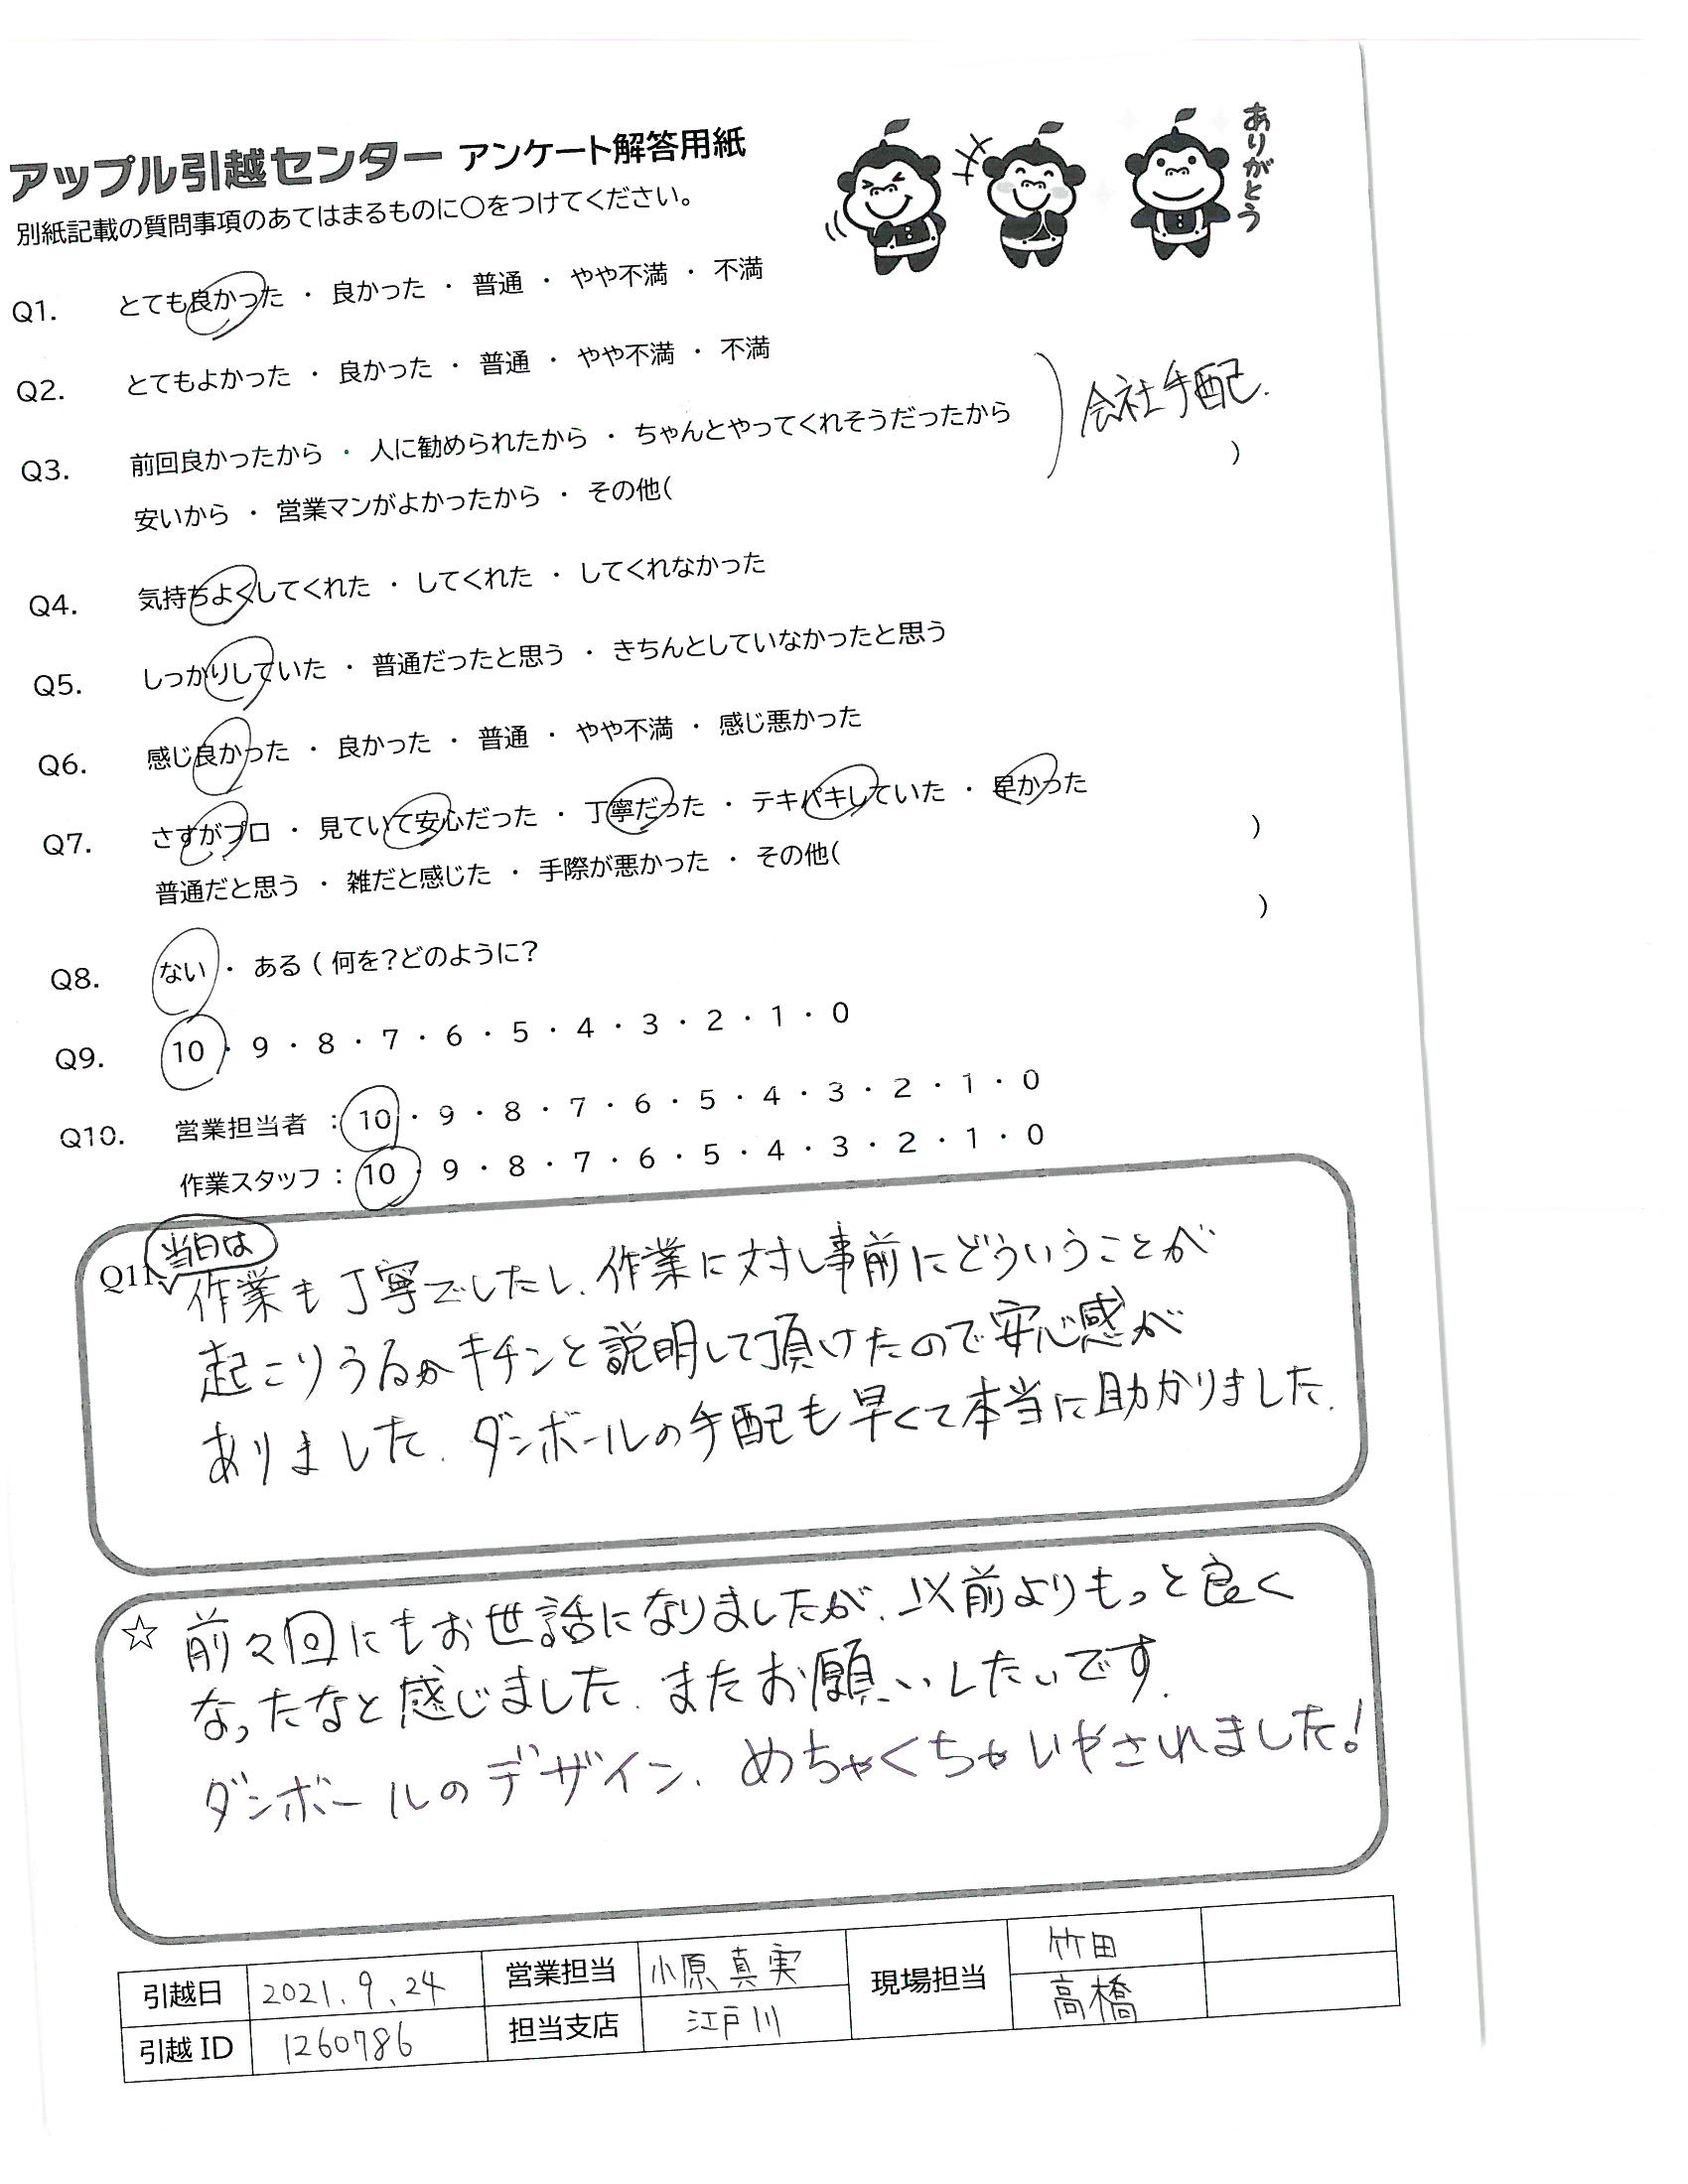 アップル引越センター アンケート解答用紙
ありがとう
別紙記載の質問事項のあてはまるものに○をつけてください。
Q1. とても良かった ・ 良かった ・ 普通 ・ やや不満 ・ 不満
Q2. とてもよかった ・ 良かった ・ 普通 ・ やや不満 ・ 不満
会社手配.
Q3. 前回良かったから ・ 人に勧められたから ・ ちゃんとやってくれそうだったから
安いから ・ 営業マンがよかったから ・ その他( )
Q4. 気持ちよくしてくれた ・ してくれた ・ してくれなかった
Q5. しっかりしていた ・ 普通だったと思う ・ きちんとしていなかったと思う
Q6. 感じ良かった ・ 良かった ・ 普通 ・ やや不満 ・ 感じ悪かった
Q7. さすがプロ ・ 見ていて安心だった ・ 丁寧だった ・ テキパキしていた ・ 早かった
普通だと思う ・ 雑だと感じた ・ 手際が悪かった ・ その他( )
Q8. ない ・ ある ( 何を?どのように? )
Q9. 10 ・ 9 ・ 8 ・ 7 ・ 6 ・ 5 ・ 4 ・ 3 ・ 2 ・ 1 ・ 0
Q10. 営業担当者 : 10 ・ 9 ・ 8 ・ 7 ・ 6 ・ 5 ・ 4 ・ 3 ・ 2 ・ 1 ・ 0
作業スタッフ : 10 ・ 9 ・ 8 ・ 7 ・ 6 ・ 5 ・ 4 ・ 3 ・ 2 ・ 1 ・ 0
当日は
Q11. 作業も丁寧でしたし、作業に対し事前にどういうことが
起こりうるかキチンと説明して頂けたので安心感が
ありました. ダンボールの手配も早くて本当に助かりました.
☆ 前々回にもお世話になりましたが、以前よりもっと良く
なったなと感じました. またお願いしたいです.
ダンボールのデザイン、めちゃくちゃいやされました!
引越日 2021.9.24 営業担当 小原真実 現場担当 竹田
高橋
引越ID 1260786 担当支店 江戸川